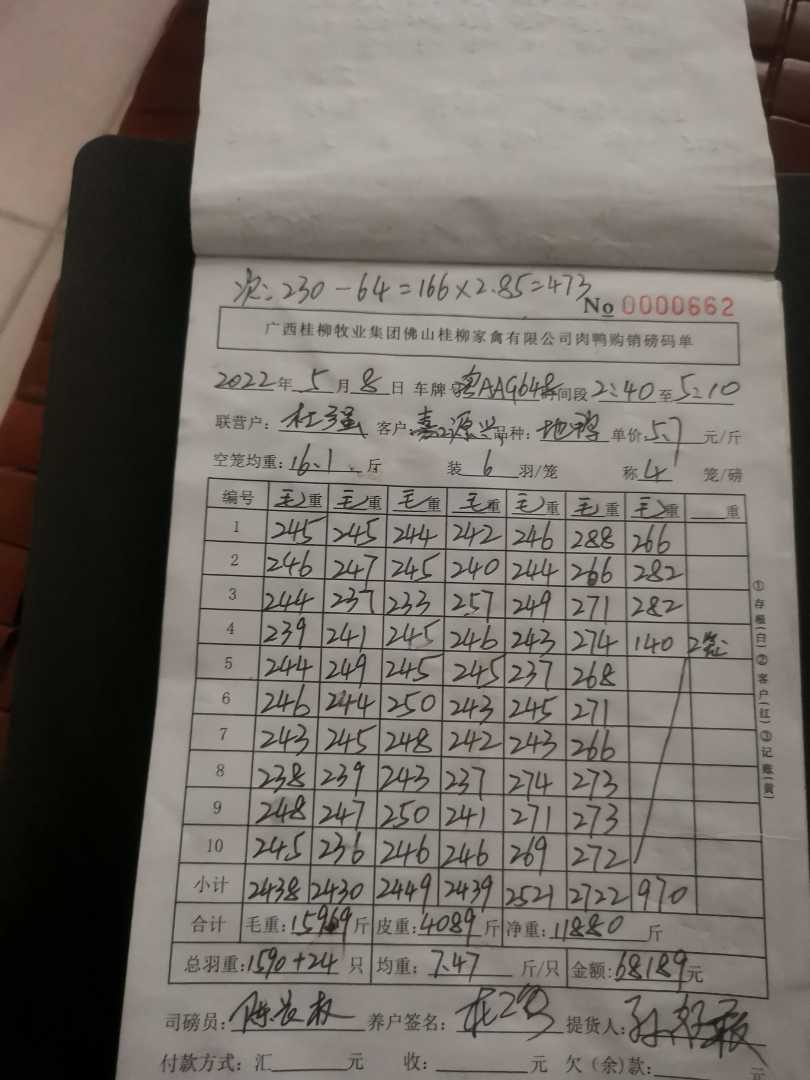 次:230-64=166×2.85=473
No 0000662
广西桂柳牧业集团佛山桂柳家禽有限公司肉鸭购销磅码单
2022年5月8日 车牌号粤AAG648时间段2:40至5:10
联营户:杜强 客户:嘉源兴 品种:地鸭 单价5.7元/斤
空笼均重:16.1斤 装6羽/笼 称4笼/磅
编号 毛重 毛重 毛重 毛重 毛重 毛重 毛重 重
1 245 245 244 242 246 288 266
2 246 247 245 240 244 266 282
3 244 237 233 257 249 271 282
4 239 241 245 246 243 274 140 2笼
5 244 249 245 245 237 268
6 246 244 250 243 245 271
7 243 245 248 242 243 266
8 238 239 243 237 274 273
9 248 247 250 241 271 273
10 245 236 246 246 269 272
小计 2438 2430 2449 2439 2521 2722 970
合计 毛重:15969斤 皮重:4089斤 净重:11880斤
总羽重:1590+24只 均重:7.47斤/只 金额:68189元
司磅员: 养户签名: 提货人:
付款方式:汇 元 收: 元 欠(余)款: 元
①存根(白)②客户(红)③记账(黄)